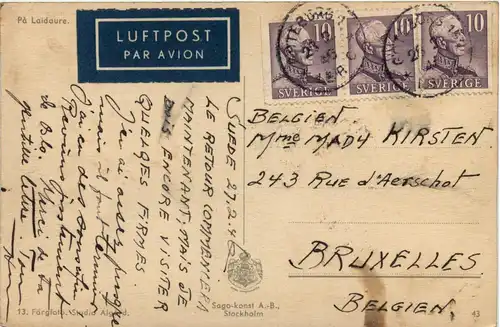 På Laidaure.
LUFTPOST
PAR AVION
10
SVERIGE
10
SVERIGE
10
SVERIGE
SUEDE 27.2.46
LE RETOUR COMMENCERA
MAINTENANT, MAIS JE
DOIS ENCORE VISITER
QUELQES FIRMES
J'en ai assez
mais il faut
J'ai eu des nouvelles
de Bala. Merci de ta
gentille lettre.
BELGIEN
Mme MADY KIRSTEN
243 Rue d'Aerschot
BRUXELLES
BELGIEN.
13. Färgfoto. Studio
Saga-konst A.-B.,
Stockholm
43